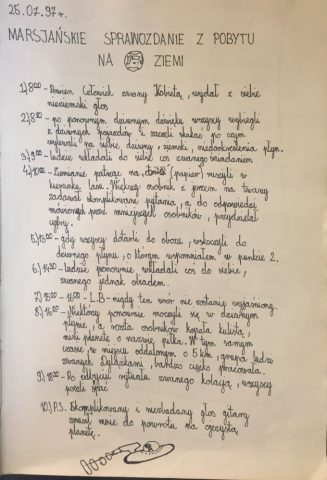 25.07.97r.
MARSJAŃSKIE SPRAWOZDANIE Z POBYTU
NA ZIEMI
1) 8⁰⁰ - Pewien Człowiek zwany Kobietą, wydał z siebie
nieziemski głos
2) 8¹⁰ - po ponownym dziwnym dźwięku wszyscy wybiegli
z dziwnych pojazdów i zaczęli skakać po czym
wylewali na siebie dziwny, ziemski, niedookreślenia płyn.
3) 9⁰⁰ - ludzie wkładali do siebie coś zwanego śniadaniem.
4) 10⁰⁰ - Ziemianie patrząc na (papier) ruszyli w
kierunku lasu. Większy osobnik z jeżem na twarzy
zadawał skomplikowane pytania, a do odpowiedzi
mówionych przez mniejszych osobników, przydzielał
cyfry.
5) 13⁰⁰ - gdy wszyscy dotarli do obozu, wskoczyli do
dziwnego płynu, o którym wspomniałem w punkcie 2.
6) 14³⁰ - ludzie ponownie wkładali coś do siebie,
zwanego jednak obiadem.
7) 15⁰⁰ - 16⁰⁰ - L.B - nigdy ten wór nie zostanie wyjaśniony.
8) 16⁰⁰ - Niektórzy ponownie moczyli się w dziwnym
płynie, a reszta osobników kopała kulistą,
mini planetę o nazwie, piłka. W tym samym
czasie, w miejscu oddalonym o 5 km, grupa ludzi
zwanych bardzo ciężko pracowała.
9) 18⁰⁰ - Po odbyciu rytuału zwanego kolacją, wszyscy
poszli spać.
10) P.S. Skomplikowany i niezbadany głos gitary
zmusił mnie do powrotu na ojczystą
planetę.